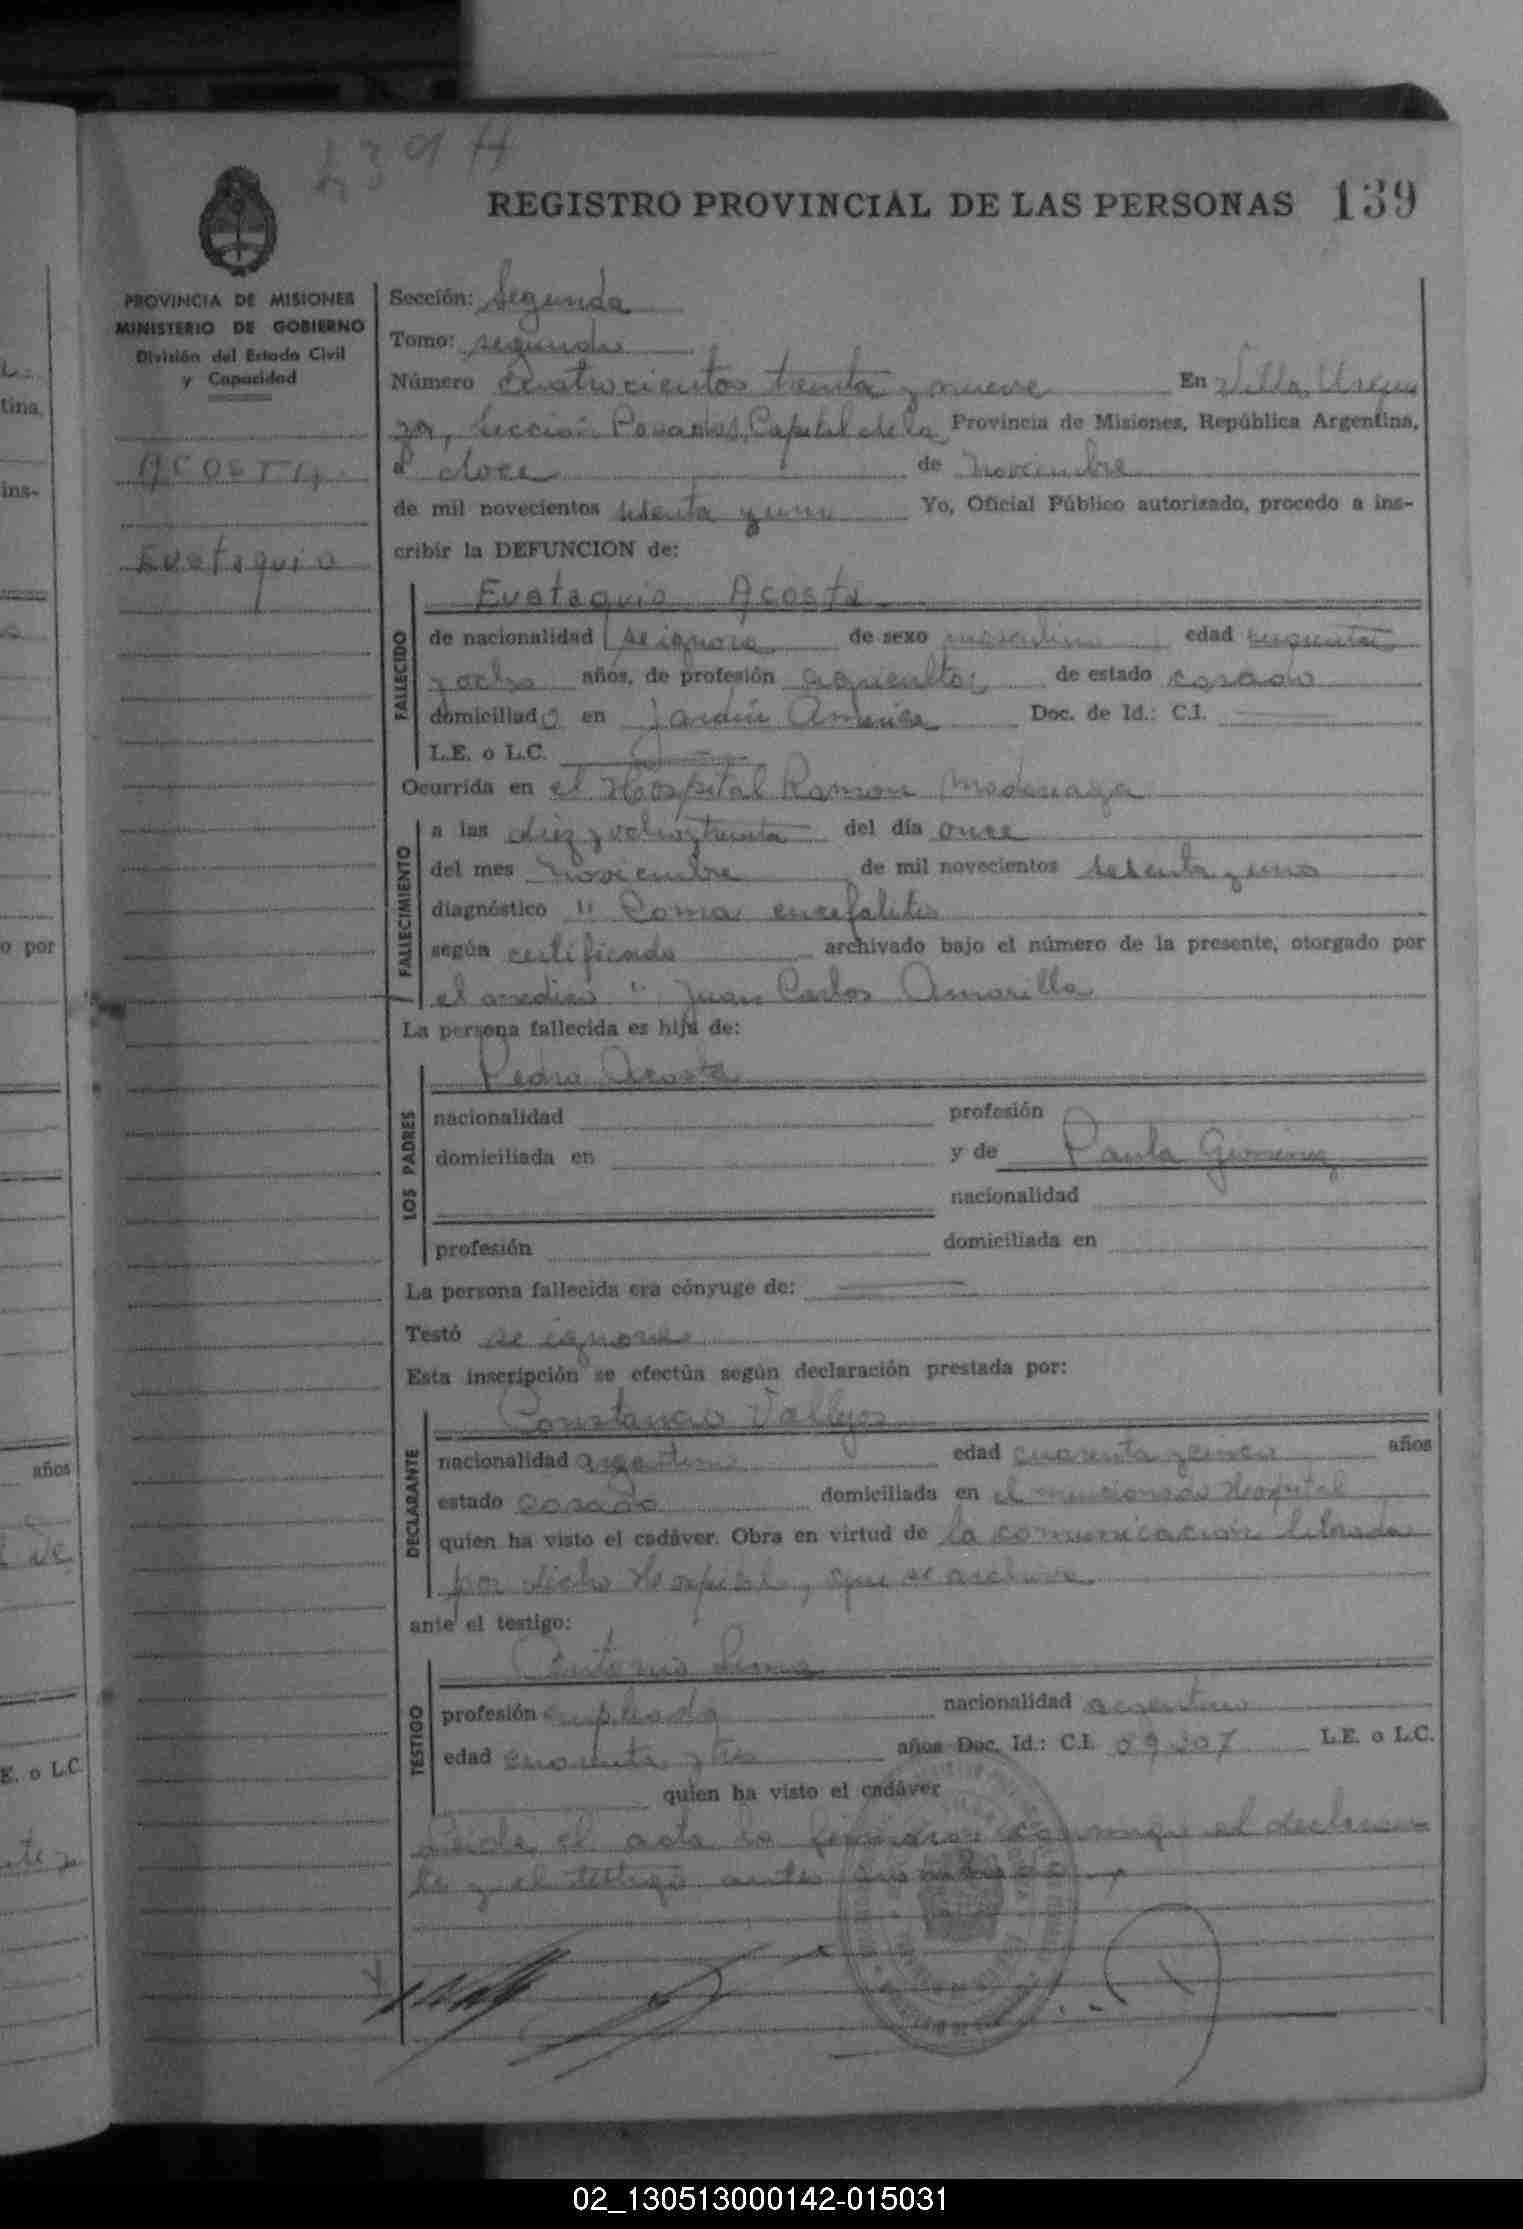 439 H
REGISTRO PROVINCIAL DE LAS PERSONAS 139
PROVINCIA DE MISIONES
MINISTERIO DE GOBIERNO
División del Estado Civil
y Capacidad
ACOSTA
Eustaquio
Sección: Segunda
Tomo: segundo
Número cuatrocientos treinta y nueve En Villa Urqui
za, Sección Posadas, Capital de la Provincia de Misiones, República Argentina,
a doce de noviembre
de mil novecientos sesenta y uno Yo, Oficial Público autorizado, procedo a ins-
cribir la DEFUNCION de:
Eustaquio Acosta
FALLECIDO
de nacionalidad se ignora de sexo masculino edad cincuenta
y ocho años, de profesión agricultor de estado casado
domiciliado en Jardín América Doc. de Id.: C.I.
L.E. o L.C.
Ocurrida en el Hospital Ramón Madariaga
FALLECIMIENTO
a las diez y ocho y treinta del día once
del mes noviembre de mil novecientos sesenta y uno
diagnóstico " Coma encefalitis
según certificado archivado bajo el número de la presente, otorgado por
el médico " Juan Carlos Amarilla
La persona fallecida es hija de:
LOS PADRES
Pedro Acosta
nacionalidad profesión
domiciliada en y de Paula Gimenez
nacionalidad
profesión domiciliada en
La persona fallecida era cónyuge de:
Testó se ignora
Esta inscripción se efectúa según declaración prestada por:
DECLARANTE
Constancio Vallejos
nacionalidad argentino edad cuarenta y cinco años
estado casado domiciliada en el mencionado Hospital
quien ha visto el cadáver. Obra en virtud de la comunicación librada
por dicho Hospital, que se archiva
ante el testigo:
TESTIGO
Antonio
profesión empleado nacionalidad argentino
edad cuarenta y tres años Doc. Id.: C.I. L.E. o L.C.
quien ha visto el cadáver
Leida el acta la firmaron conmigo el declaran
te y el testigo antes
o por
años
E. o L.C.
tina,
ins-
02_130513000142-015031